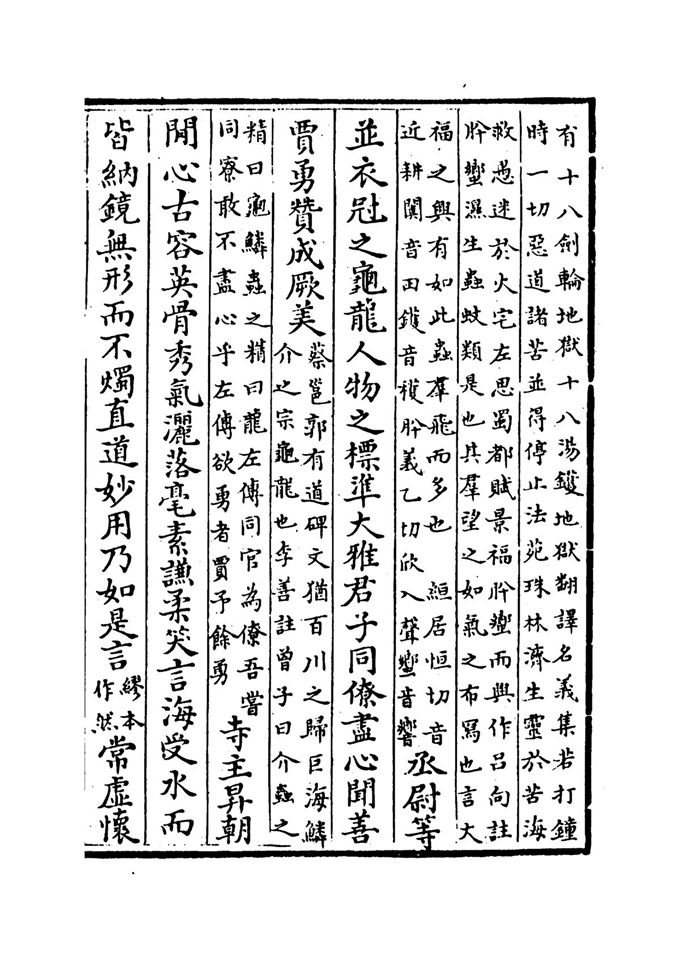 有十八劍輪地獄十八湯鑊地獄翻譯名義集若打鐘
時一切惡道諸苦並得停止法苑珠林濟生靈於苦海
救愚迷於火宅左思蜀都賦景福肸蠁而興作吕向註
肸蠁濕生蟲蚊類是也其羣望之如氣之布寫也言大
福之興有如此蟲羣飛而多也 絙居恒切音
近耕闐音田鑊音穫肸羲乙切欣入聲蠁音響
丞尉等
並衣冠之龜龍人物之標準大雅君子同僚盡心聞善
賈勇贊成厥美
蔡邕郭有道碑文猶百川之歸巨海鱗
介之宗龜龍也李善註曾子曰介蟲之
精曰龜鱗蟲之精曰龍左傳同官為僚吾嘗
同寮敢不盡心乎左傳欲勇者賈予餘勇
寺主昇朝
閒心古容英骨秀氣灑落毫素謙柔笑言海受水而
皆納鏡無形而不燭直道妙用乃如是言
繆本
作然
常虛懷